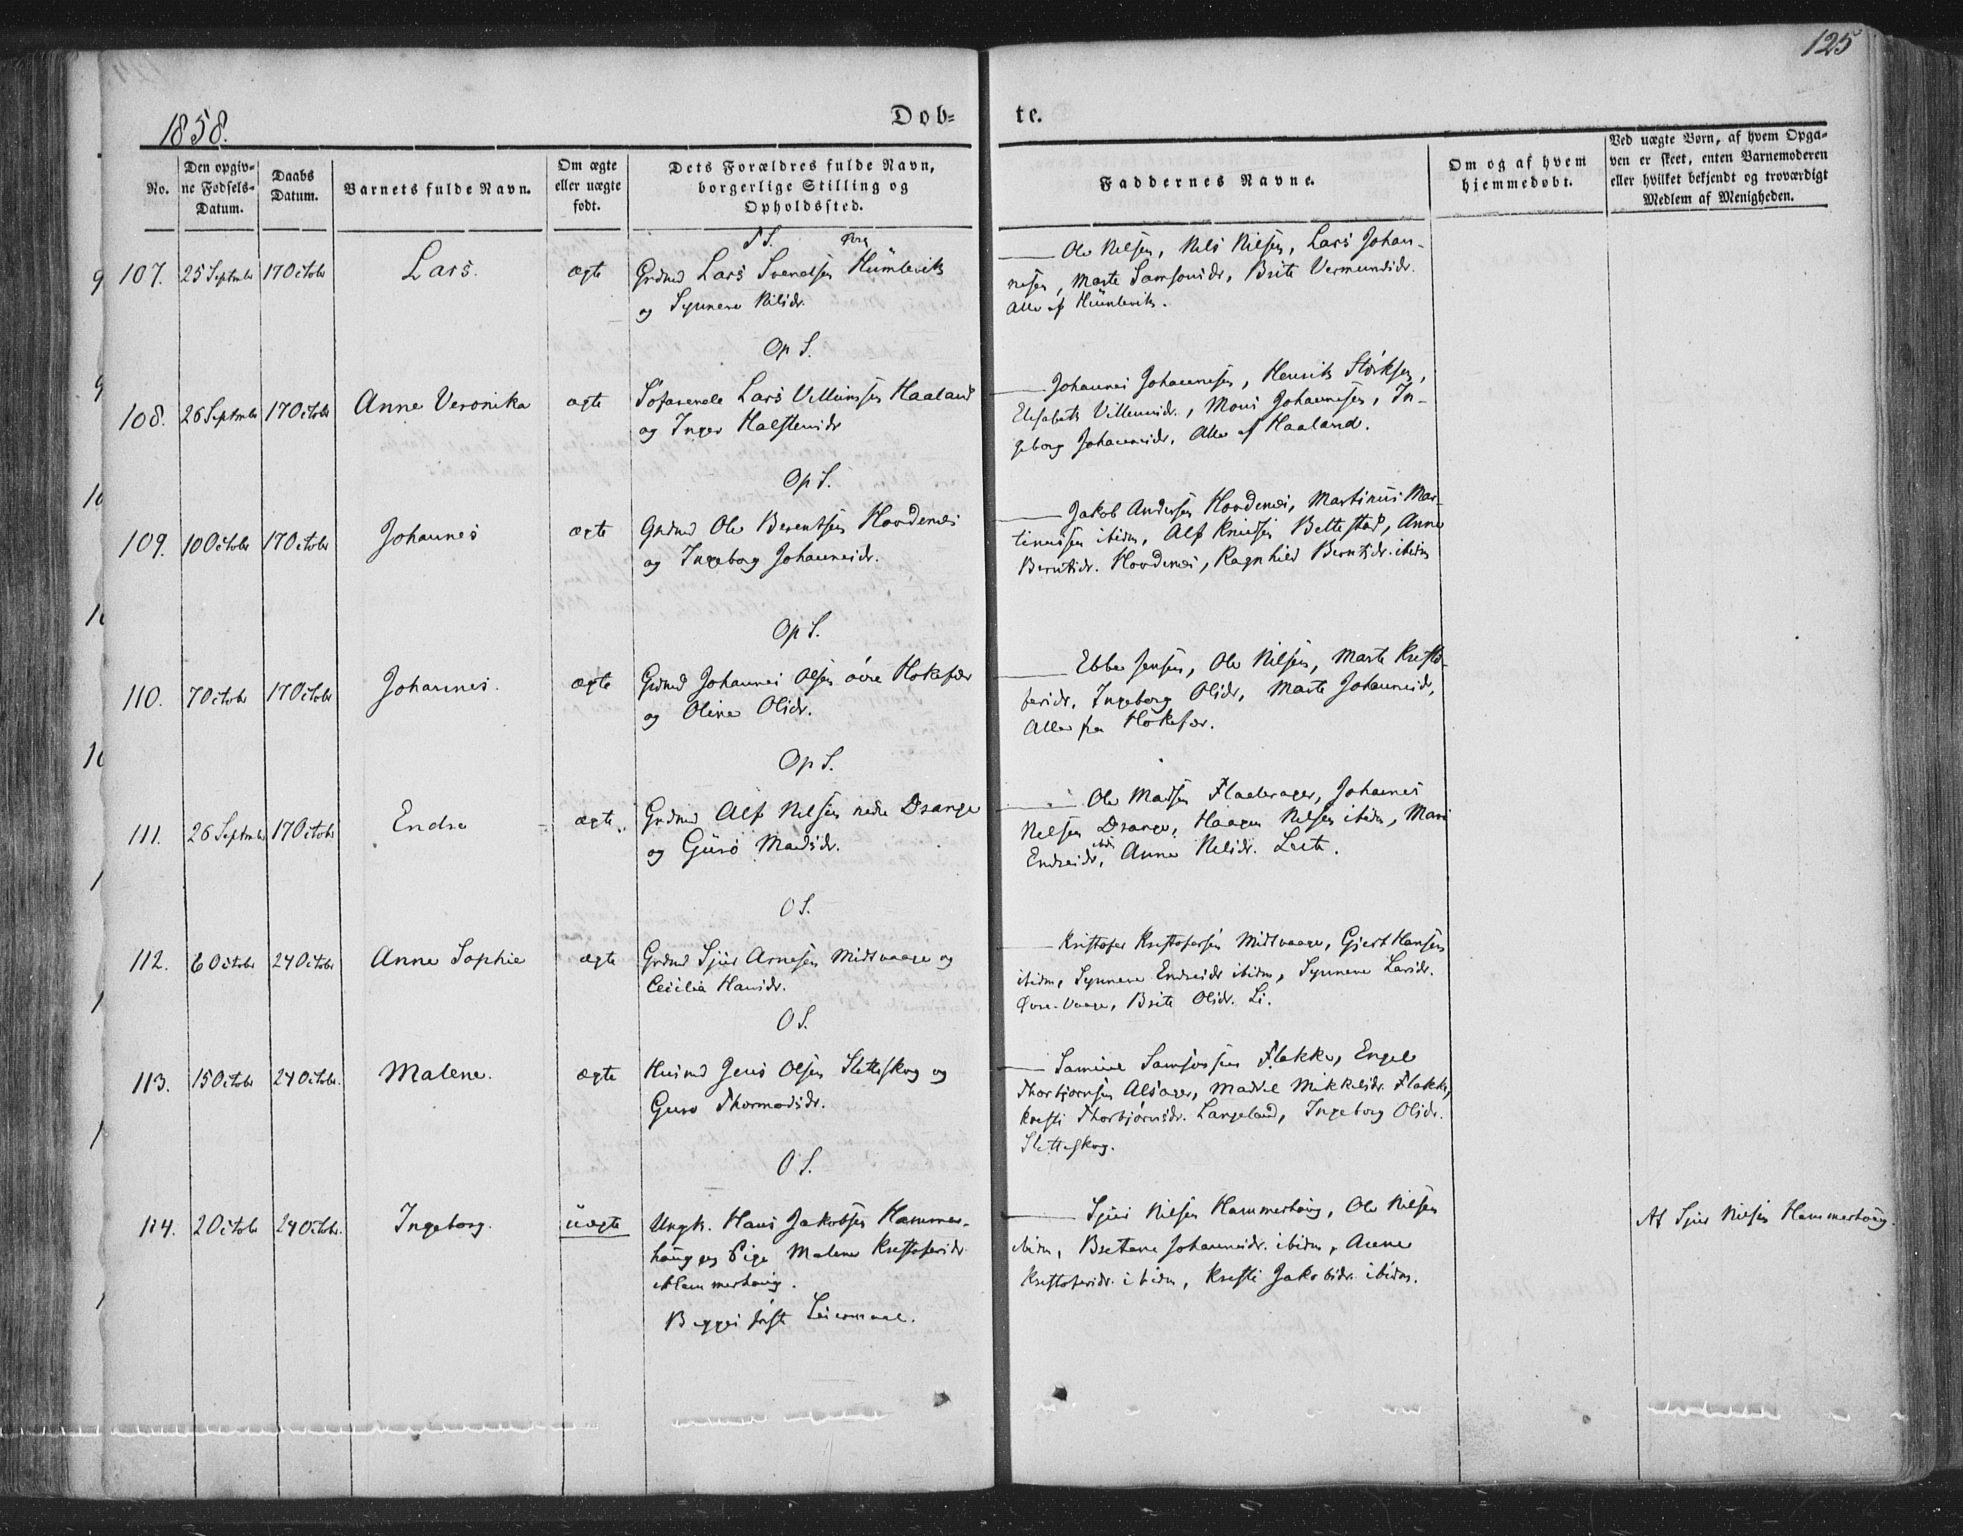 125
1858.
Døb-
te.
No.
Den opgiv-
ne Fødsels-
Datum.
Daabs
Datum.
Barnets fulde Navn.
Om ægte
eller uægte
født.
Dets Forældres fulde Navn,
borgerlige Stilling og
Opholdssted.
Faddernes Navne.
Om og af hvem
hjemmedøbt.
Ved uægte Børn, af hvem Opga-
ven er skeet, enten Barnemoderen
eller hvilket bekjendt og troværdigt
Medlem af Menigheden.
107. 25 Septmbr 17 Octobr Lars. ægte
Grdmd Lars Svendsen Humlevik
og Synneve Nilsdr.
Ole Nilsen, Nils Nilsen, Lars Johan-
nesen, Marte Samsonsdr, Brite Vermundsdr.
Alle af Humlevik.
Op S.
108. 26 Septmbr 17 Octobr Anne Veronika ægte
Lars Villumsen Haaland
og Inger Halstensdr
Johannes Johannesen, Henrik Størksen,
Elisabeth Villumsdr., Mons Johannesen, In-
geborg Johannesdr. Alle af Haaland.
Op S.
109. 10 Octobr 17 Octobr Johannes ægte
Grdmd Ole Berentsen Hovdenes
og Ingeborg Johannesdr.
Jakob Andersen Hovdenes, Martinus Mar-
tinussen ibidm, Alf Knudsen Bettestad, Anne
Berntsdr. Hovdenes, Ragnhild Berntsdr. ibidm
Op S.
110. 7 Octobr 17 Octobr Johannes. ægte
Grdmd Johannes Olsen øvre Hokefær
og Oline Olsdr.
Ebbe Jensen, Ole Nilsen, Marte Kristo-
fersdr, Ingeborg Olsdr, Marte Johannesdr,
Alle fra Hokefær.
Op S.
111. 26 Septmbr 17 Octobr Endre ægte
Grdmd Alf Nilsen nedre Drange
og Gurø Madsdr.
Ole Madsen Fladerager, Johannes
Nilsen Drange, Haagen Nilsen ibidm, Mari
Endresdr ibdm, Anne Nilsdr.
O S.
112. 6 Octobr 24 Octobr Anne Sophie ægte
Grdmd Sjur Arnesen Midtvaage og
Cecilia Hansdr.
Kristofer Kristofersen Midtvaage, Gjert Hansen
ibidm, Synneve Endresdr ibidm, Synneve Larsdr.
Øvre-Vaage, Brite Olsdr. Li.
O S.
113. 15 Octobr 24 Octobr. Malene. ægte
Husmd Jens Olsen Sletteskog og
Guro Thormodsdr.
Samuel Samsonsen Flakke, Engel
Thorbjørnsen Alsager, Maddel Mikkelsdr. Flakke,
Kristi Thorbjørnsdr. Langeland, Ingeborg Olsdr.
Sletteskog.
O S.
114. 2 Octobr 24 Octobr. Ingeborg. uægte
Ungk. Hans Jakobsen Hammer-
houg og Pige Malene Kristofersdr.
Hammerhoug.
Begges første Leiermaal.
Sjur Nilsen Hammerhoug, Ole Nilsen
ibidm, Bretane Johannesdr. ibidm, Anne
Kristofersdr. ibidm, Kristi Jakobsdr. ibidm.
Af Sjur Nilsen Hammerhoug.